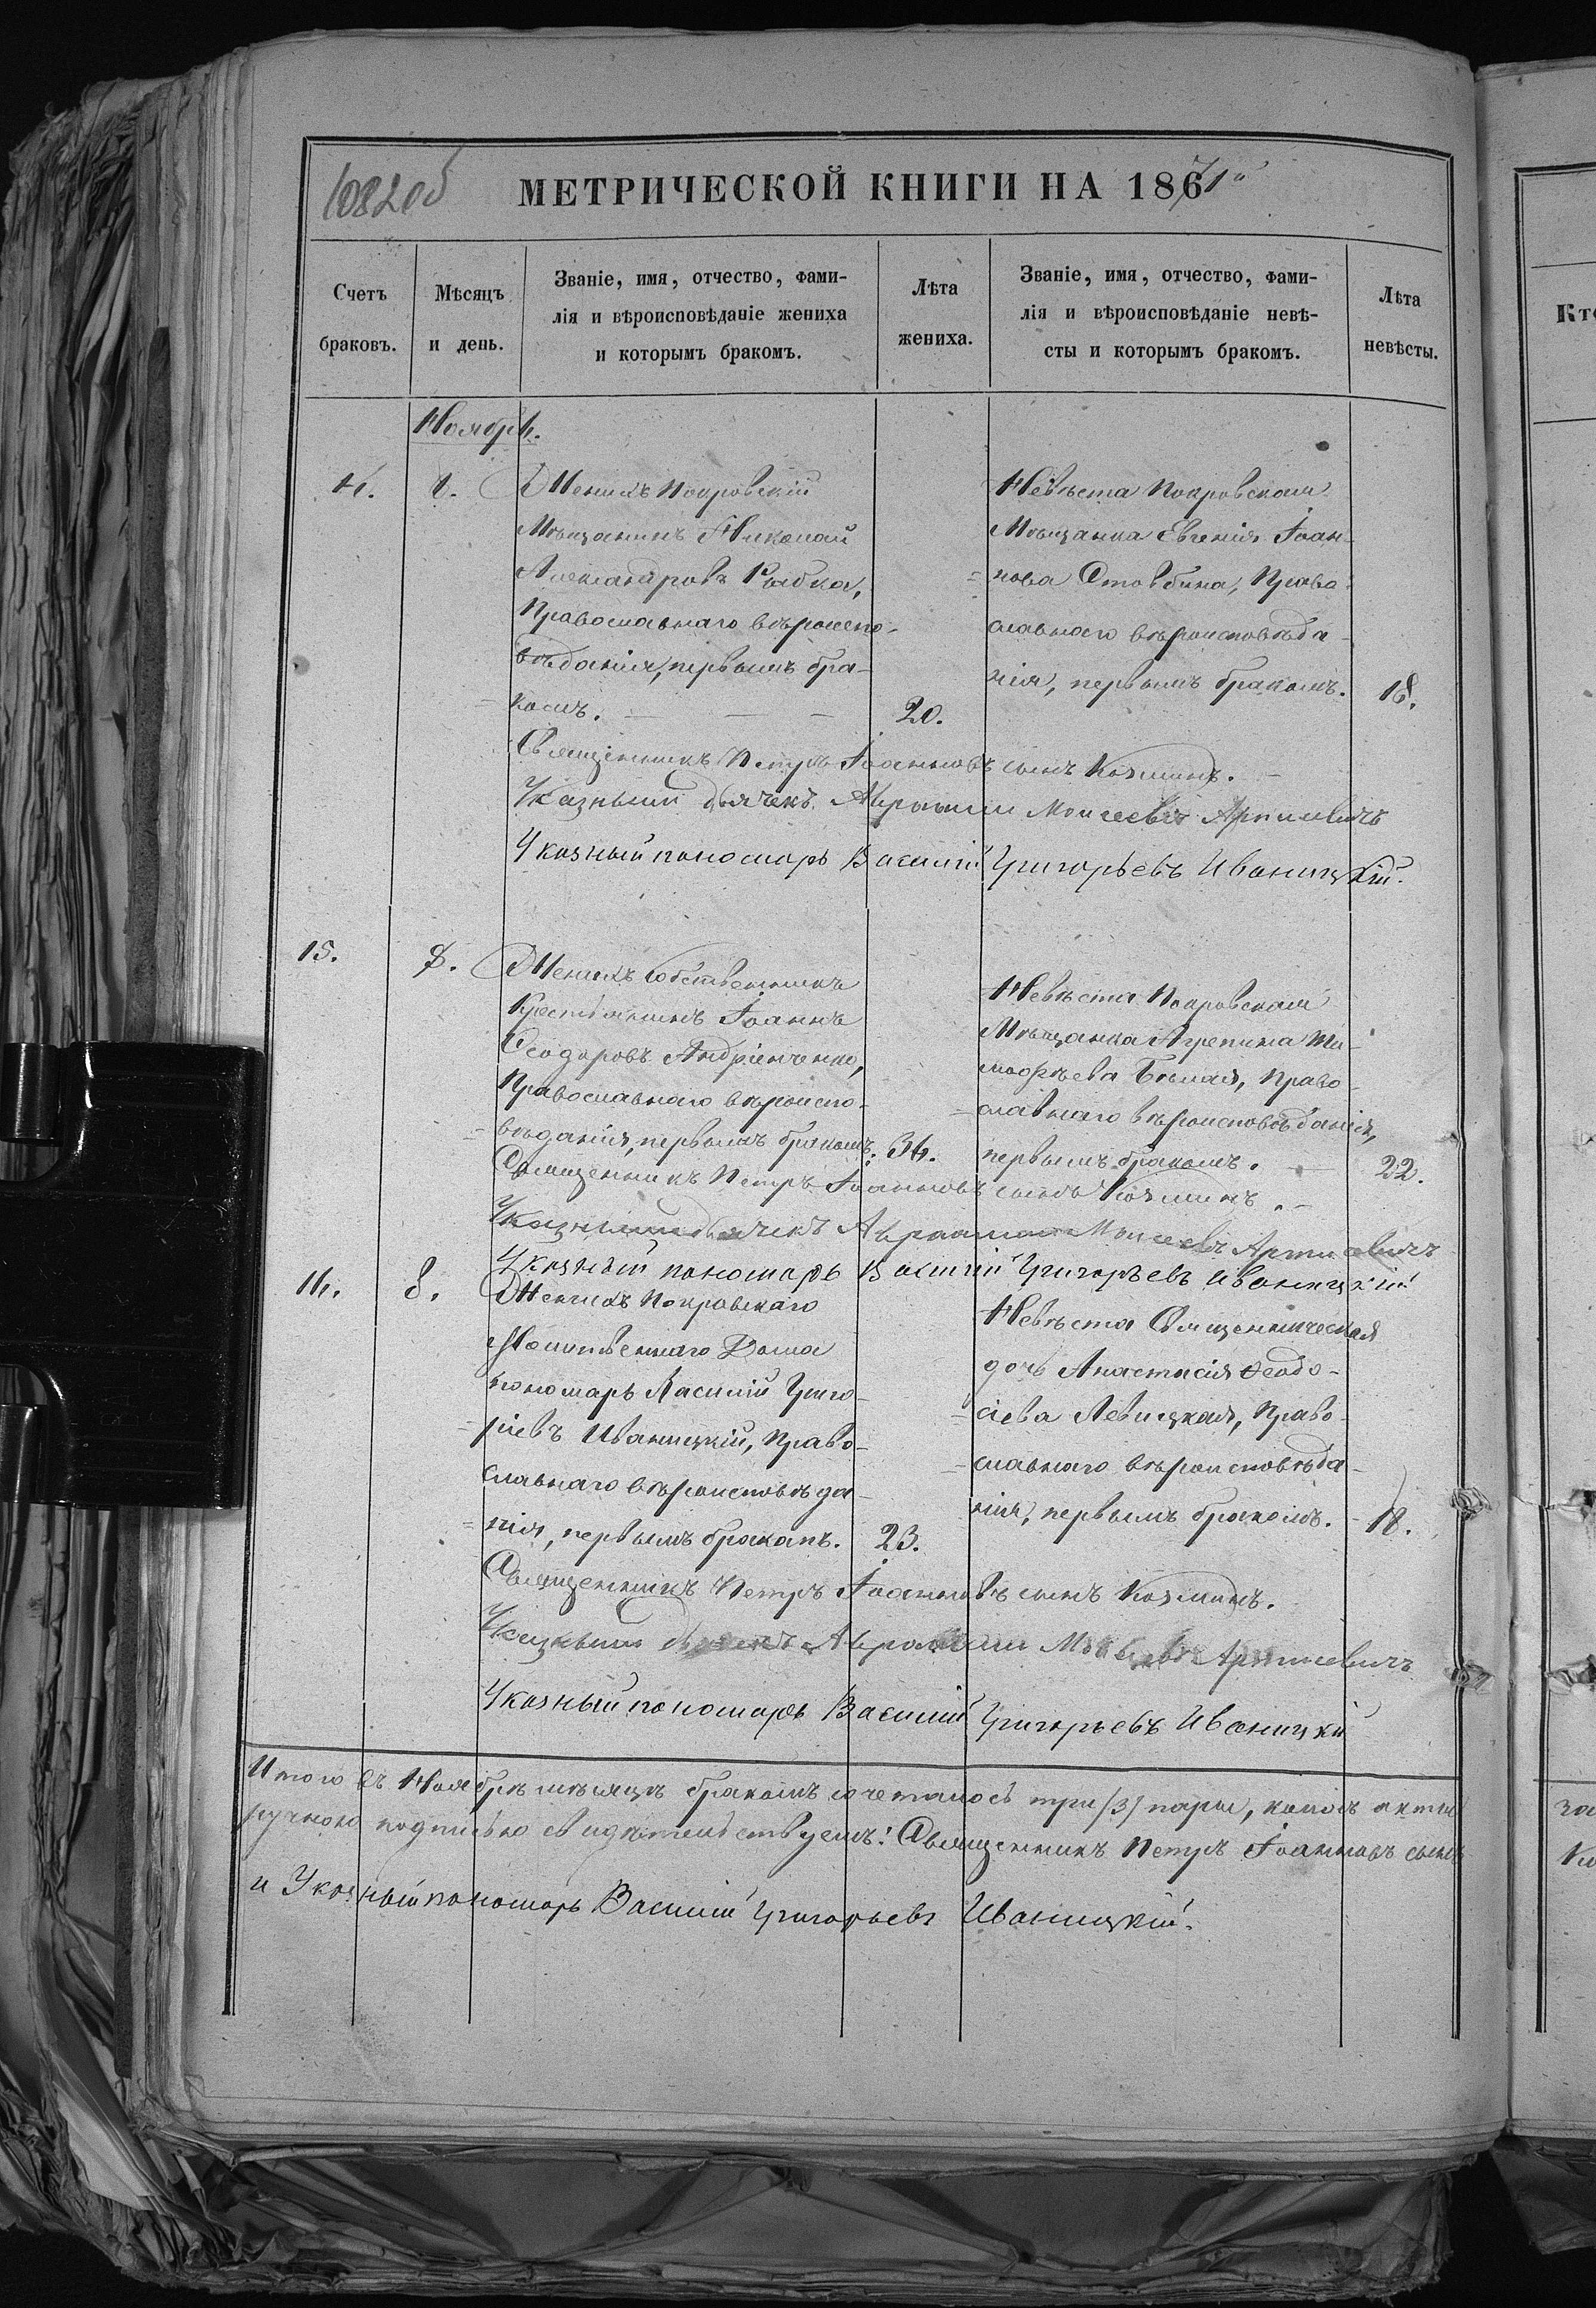 1082об
МЕТРИЧЕСКОЙ КНИГИ НА 1871й
Счетъ браковъ.
Мѣсяцъ и день.
Званіе, имя, отчество, фами-
лія и вѣроисповѣданіе жениха
и которымъ бракомъ.
Лѣта жениха.
Званіе, имя, отчество, фами-
лія и вѣроисповѣданіе невѣ-
сты и которымъ бракомъ.
Лѣта невѣсты.
Кто
Ноябрь.
8.
Женихъ Покровскій
Мѣщанинъ Николай
Александровъ Рыбка,
Православнаго вѣроиспо-
вѣданія, первымъ бра-
комъ.
20.
Невѣста Покровская
Мѣщанка Евгенія Іоан-
нова Стовбина, Право-
славнаго вѣроисповѣда-
нія, первымъ бракомъ.
18.
Священникъ Петръ Іоанновъ сынъ Козминъ.
Указный дьячекъ Авраамій Моисеевъ Артисевичъ
Указный пономарь Василій Григорьевъ Иваницкій.
15.
8.
Женихъ собственникъ
Крестьянинъ Іоаннъ
Ѳеодоровъ Андріенченко,
Православнаго вѣроиспо-
вѣданія, первымъ бракомъ.
34.
Невѣста Покровская
Мѣщанка Агрепина Ти-
моѳѣева Бѣлая, Право-
славнаго вѣроисповѣданія,
первымъ бракомъ.
22.
Священникъ Петръ Іоанновъ сынъ Козминъ.
Указный дьячекъ Авраамій Моисеевъ Артисевичъ
Указный пономарь Василій Григорьевъ Иваницкій
16.
8.
Женихъ Покровскаго
Молитвеннаго Дома
пономарь Василій Григо-
ріевъ Иваницкій, Право-
славнаго вѣроисповѣда-
нія, первымъ бракомъ.
23.
Невѣста Священническая
дочь Анастасія Ѳеодо-
сіева Левицкая, Право-
славнаго вѣроисповѣда-
нія, первымъ бракомъ.
18.
Священникъ Петръ Іоанновъ сынъ Козминъ.
Указный дьячекъ Авраамій Моисеевъ Артисевичъ
Указный пономарь Василій Григорьевъ Иваницкій
Итого въ Ноябрѣ мѣсяцѣ бракомъ сочеталось три /3/ пары, акты
ручною подписью свидѣтельствуемъ: Священникъ Петръ Іоанновъ сынъ
и Указный пономарь Василій Григорьевъ Иваницкій.